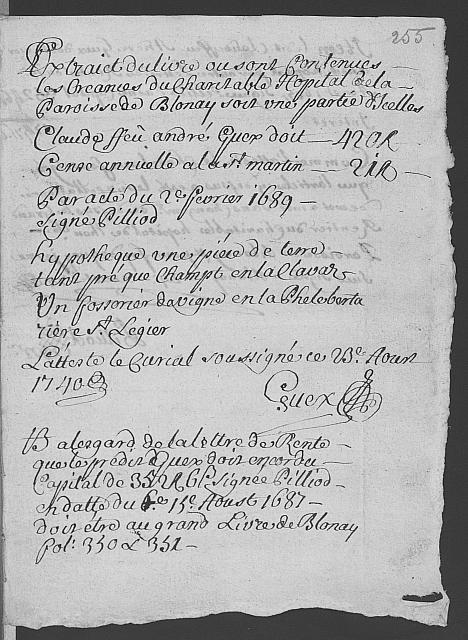 255
Extraict du livre ou sont Contenues
les Creances du Charitable Hopital de la
Paroisse de Blonay soit une partie d'Icelles
Claude ffeu andré Guex doit — 420 ll
Cense annielle a la St martin — 21 ll
Par acte du 2e fevrier 1689 —
signé Pilliod
hypotheque une piece de terre
tant pré que Champt en la Clavar
Un fossorier de vigne en la Pheleberta
riére St Legier
L'atteste le Curial soussigné ce 23e Aoust
1740
Guex
A lesgard de la lettre de Rente —
que les prédit Guex doit encor du —
Capital de 352 ll 6 signée Pilliod —
en datte du 15e Aoust 1687 —
doit être au grand Livre de Blonay
fol: 350 & 351 —